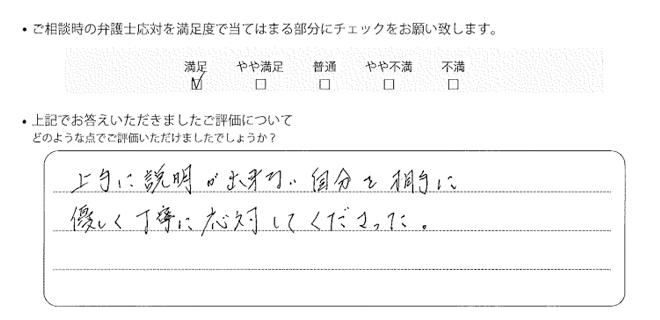 ・ご相談時の弁護士応対を満足度で当てはまる部分にチェックをお願い致します。
満足 やや満足 普通 やや不満 不満
☑ □ □ □ □
・上記でお答えいただきましたご評価について
どのような点でご評価いただけましたでしょうか？
上手に説明が出来ない自分を相手に
優しく丁寧に応対してくださった。